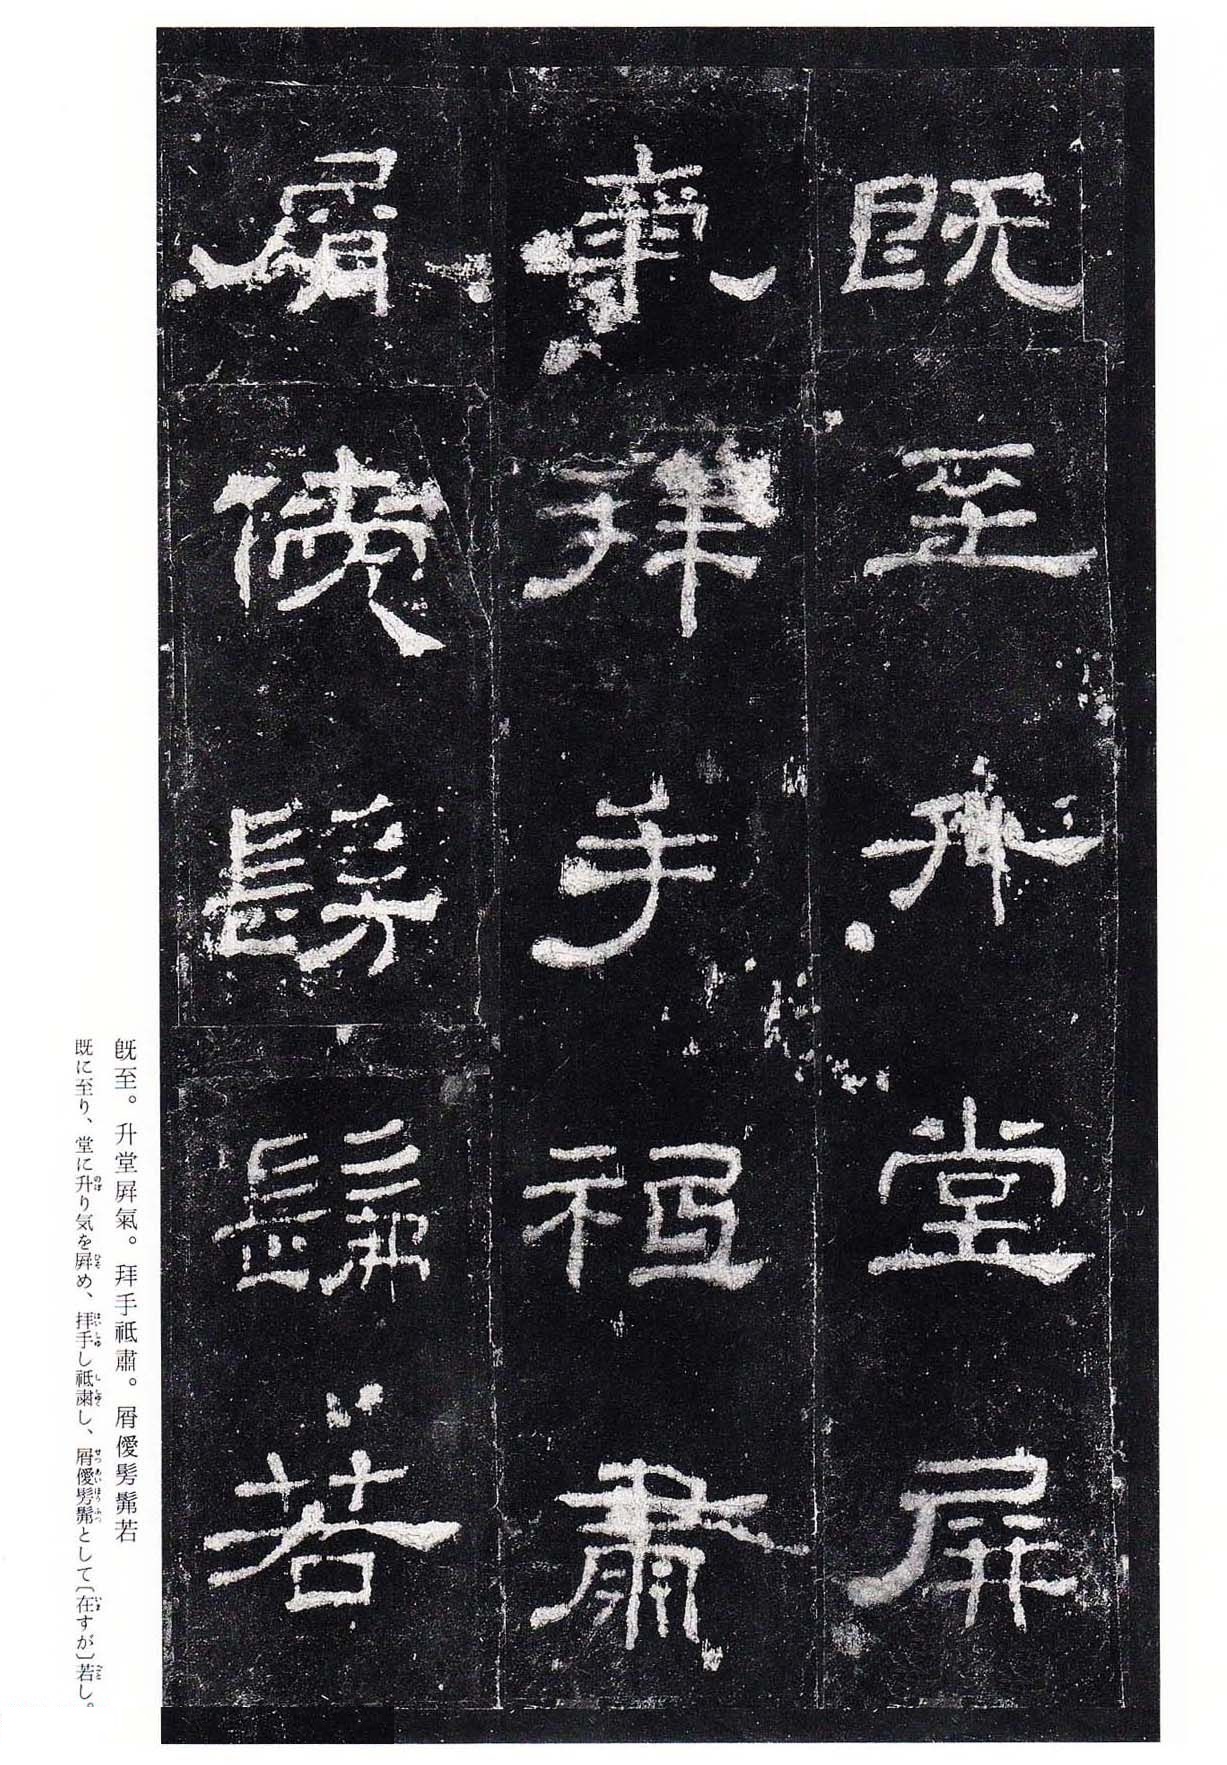 既至升堂屏
氣拜手祗肅
屑僾髣髴若
旣至。升堂屛氣。拜手祗肅。屑僾髣髴若
既に至り、堂に升り気を屛め、拝手し祗粛し、屑僾髣髴として〔在すが〕若し。